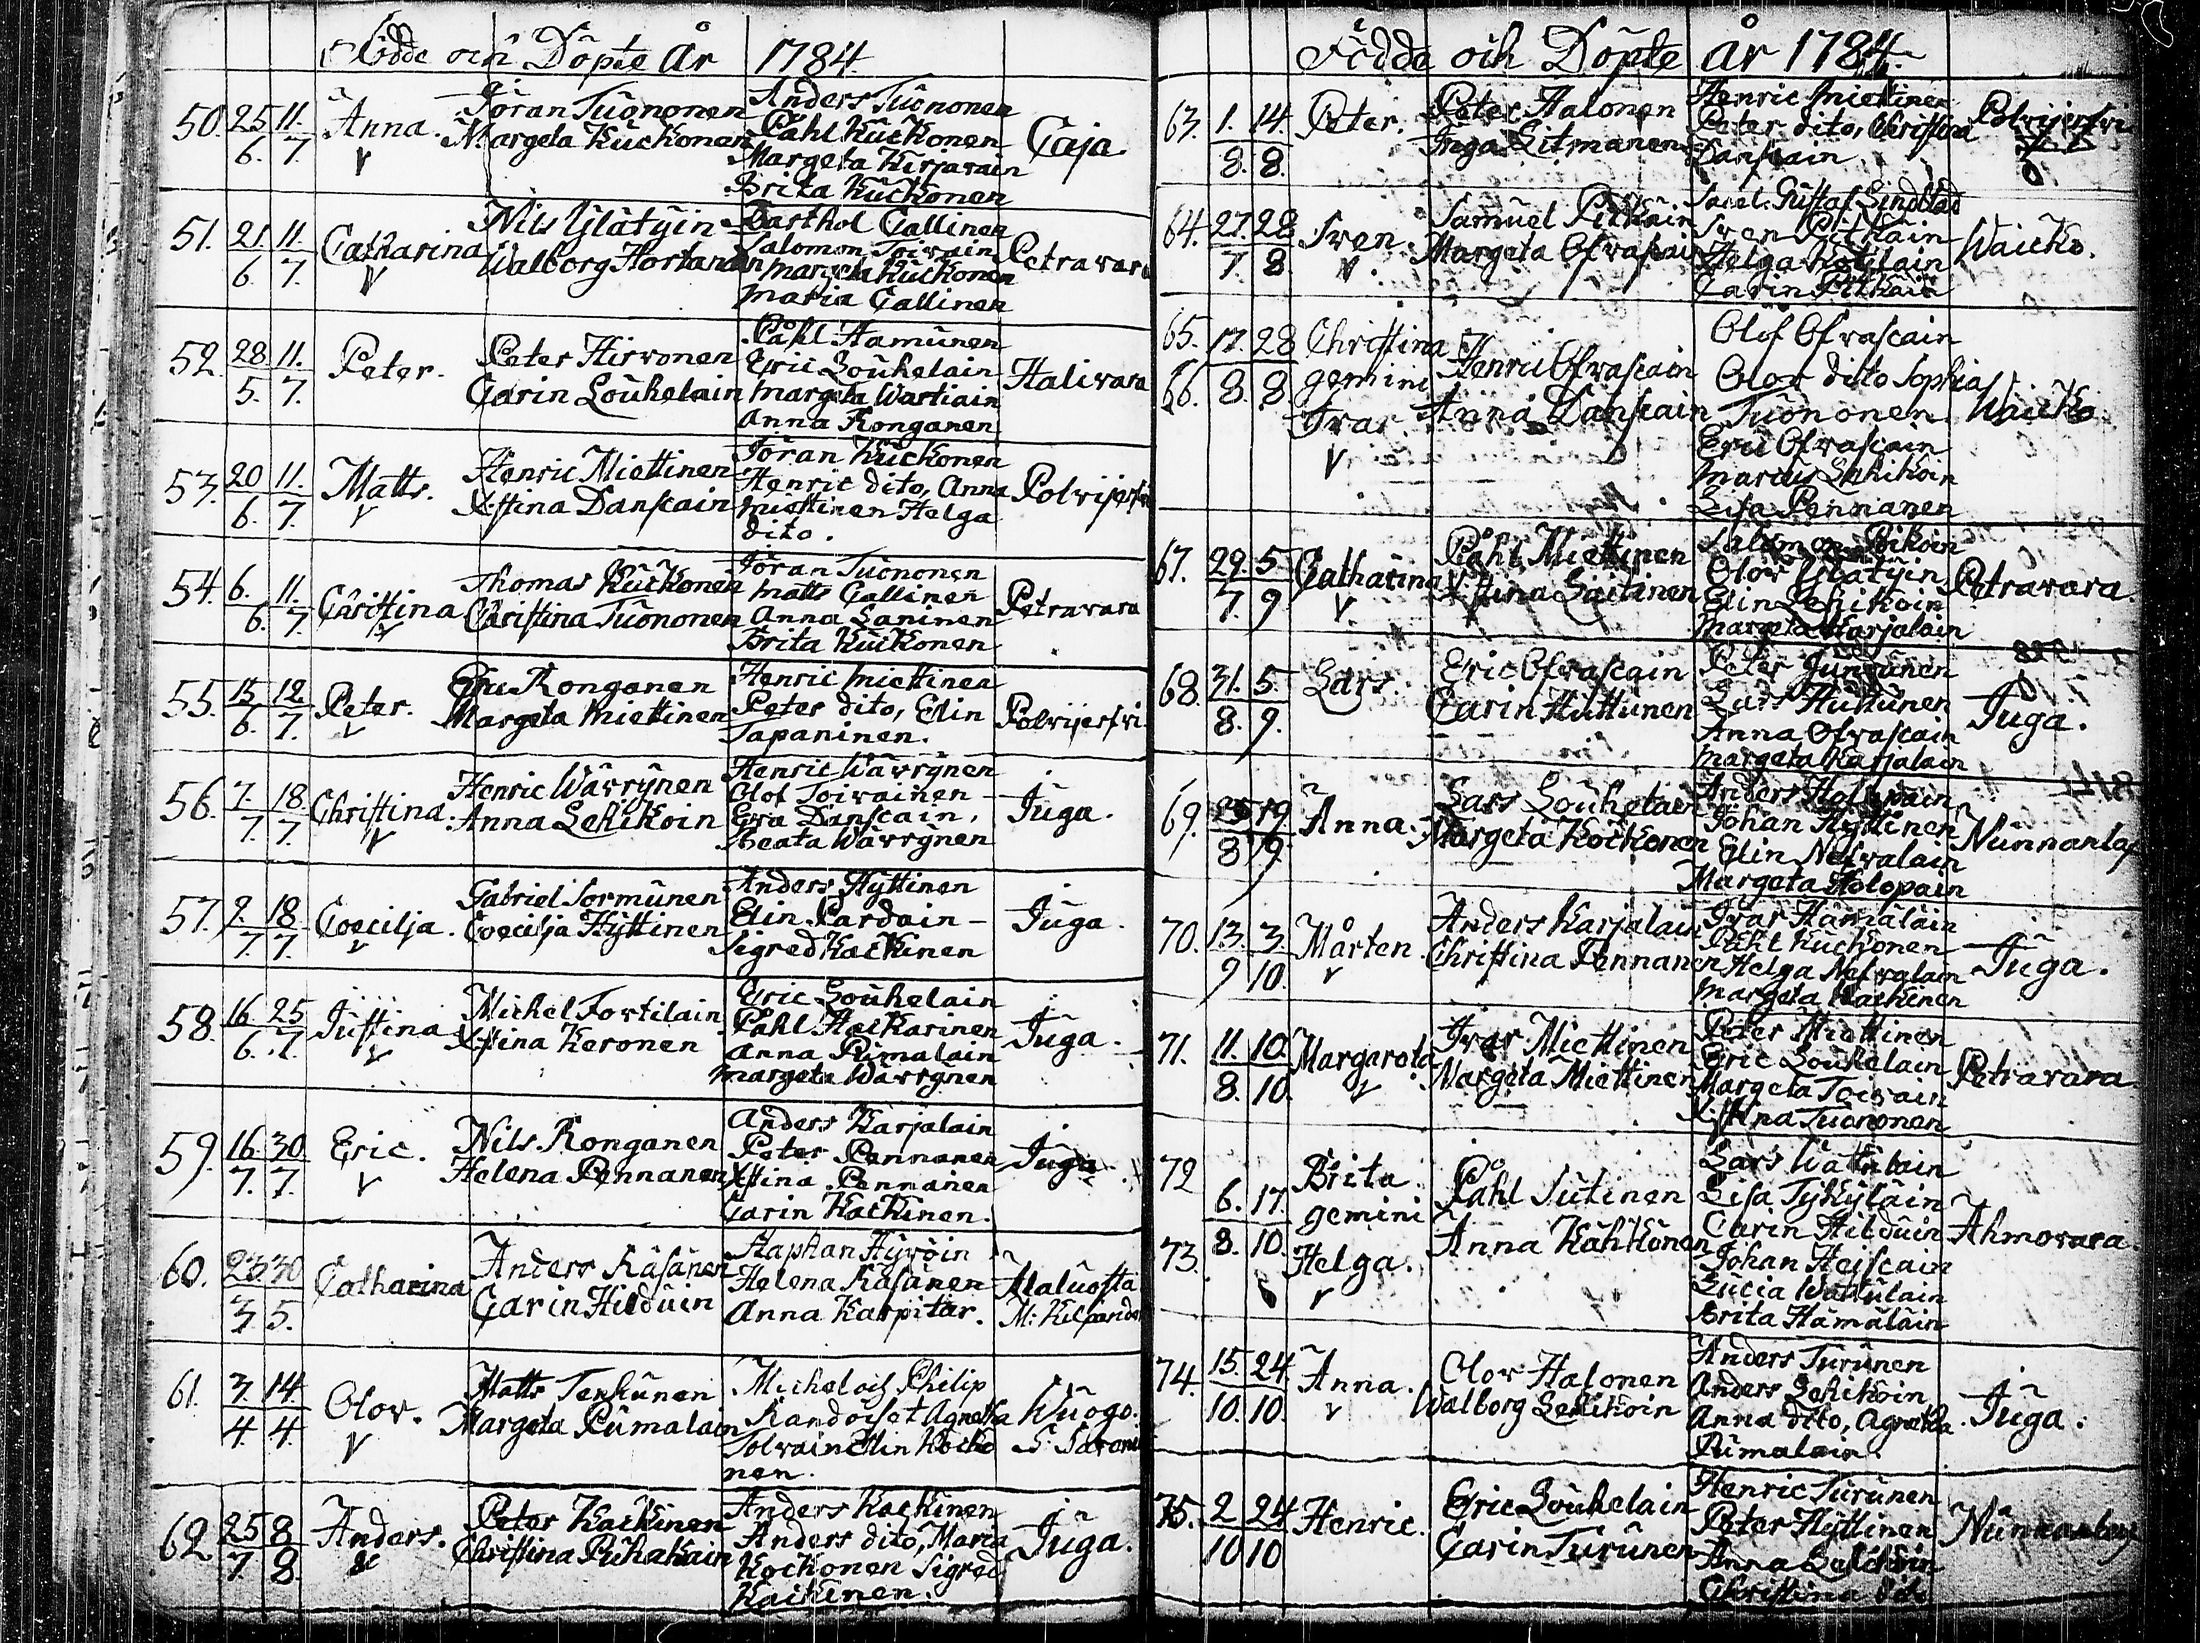 Födde och Döpte År 1784
50. 25/6. 11./7. Anna. Jöran Tuononen Anders Tuononen
Margeta Kuckonen Påhl Kuckonen Caja
Margeta Kirjavain
Brita Kuckonen
51. 21./6. 11./7. Catharina Nils Ylatyin Barthol Gallinen
Walborg Hortanain Salomon Toivain Petravara
Margeta Kuckonen
Maria Gallinen
52. 28/5. 11./7. Peter. Peter Hirvonen Påhl Hamunen
Carin Louhelain Eric Louhelain Halivara
Margeta Wartiain
Anna Ronganen
53. 20/6. 11./7. Matts. Henric Miettinen Jöran Kuckonen
X:stina Danscain Henric dito, Anna Polvijerfvi
Miettinen Helga
dito.
54. 6./6. 11./7. Christina Thomas Kuckonen Jöran Tuononen
Christina Tuononen Matts Gallinen Petravara
Anna Saninen
Brita Kuckonen
55. 15/6. 12./7. Peter. Eric Ronganen Henric Miettinen
Margeta Miettinen Peter dito, Elin Polvijerfvi
Tapaninen.
56. 7./7. 18./7. Christina. Henric Wävrynen Henric Wävrynen
Anna Lehikoin Olof Toivainen Juga.
Eva Danscain,
Beata Wävrynen
57. 9./7. 18/7. Coecilja. Gabriel Sormunen Anders Hyttinen
Coecilja Hyttinen Elin Pardain Juga.
Sigred Kackinen
58. 16./6. 25/7. Justina Michel Tortilain Eric Louhelain
X:stina Keronen Påhl Hackarinen Juga.
Anna Rimalain
Margeta Wävrynen
59. 16./7. 30/7. Eric. Nils Ronganen Anders Karjalain
Helena Pennanen Peter Pennanen Juga.
X:stina Pennanen
Carin Kackinen.
60. 23./3. 30/5. Catharina Anders Räsänen Staphan Hyvöin
Carin Hilduin Helena Räsänen Alaluosta
Anna Karpitar. M:
61. 3./4. 14./4. Olov. Matts Terhunen Michel och Philip
Margeta Rumalain Kandoiset Agnetha Wuogo.
Tolvain Elin Kocko
nen.
62 25/7. 8/8. Anders. Peter Kackinen Anders Kackinen
Christina Puhakain Anders dito, Maria Juga.
Kockonen Sigred
Kackinen.
Födde och Döpte år 1784
63. 1./8. 14./8. Peter. Peter Halonen Henric Miettinen
Inga Litmanen Peter dito, Christina Polvijerfvi
Danscain
64. 27./7. 28/8 Sven. Samuel Pitkäin Gustaf Lindstad
Margeta Ofvascain Sven Pitkäin Waicko.
Helga Kotilain
Carin Pitkäin
65. 17./8. 28/8. Christina Henric Ofvascain Olof Ofvascain
66. gemini Anna Danscain Olov dito Sophia Waicko
Ivar Tuononen
Eric Ofvascain
Marcus Lehikoin
Lisa Pennanen
67. 29./7. 5/9 Catharina Påhl Miettinen Salomon Poikoin
X:stina Saitinen Olov Ylatyin Petravara.
Elin Lehikoin
Margeta Karjalain
68. 31./8. 5./9. Lars. Eric Ofvascain Peter Jununen
Carin Huttunen Lars Huttunen Juga.
Anna Ofvascain
Margeta Karjalain
69. 19/9. Anna. Lars Louhelain Anders Holopain
Margeta Kockonen Johan Hyttinen Nunnanlax
Elin Nefvalain
Margeta Holopain
70. 13./9 3./10. Mårten. Anders Karjalain Ivar Hämäläin
Christina Pennanen Påhl Kuckonen Juga.
Helga Nefvalain
Margeta Kackinen
71. 11./8. 10./10. Margareta Ivar Miettinen Peter Miettinen
Margeta Miettinen Eric Louhelain Petravara
Margeta Toivain
X:stina Tuononen
72 6./8. 17./10. Brita Påhl Sutinen Lars Wattulain
gemini Anna Kähkönen Lisa Tykyläin
73. Helga. Carin Hilduin Ahmovara.
Johan Heiscain
Lucia Wattulain
Brita Hämäläin
74. 15./10. 24./10. Anna. Olov Halonen Anders Turunen
Walborg Lehikoin Anders Lehikoin
Anna dito, Agnetha Juga.
Rumalain
75. 2/10 24/10 Henric. Eric Louhelain Henric Turunen
Carin Turunen Peter Hyttinen Nunnanlax
Anna
Christina dito